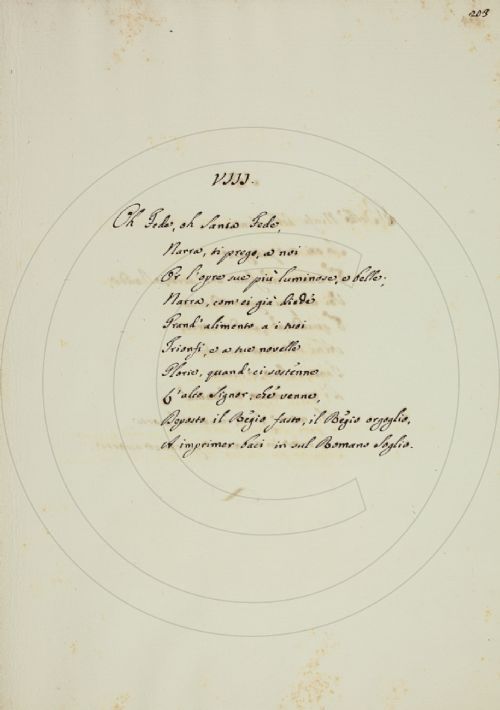 203
VIII.
Oh Fede, oh Santa Fede,
Narra, ti prego, a noi
Or l'opre sue più luminose, e belle;
Narra, com'ei già diede
Grand' alimento a i tuoi
Trionfi, e a tue novelle
Glorie, quand' ei sostenne
L' alto Signor, che venne,
Deposto il Regio fasto, il Regio orgoglio,
A imprimer baci in sul Romano Soglio.